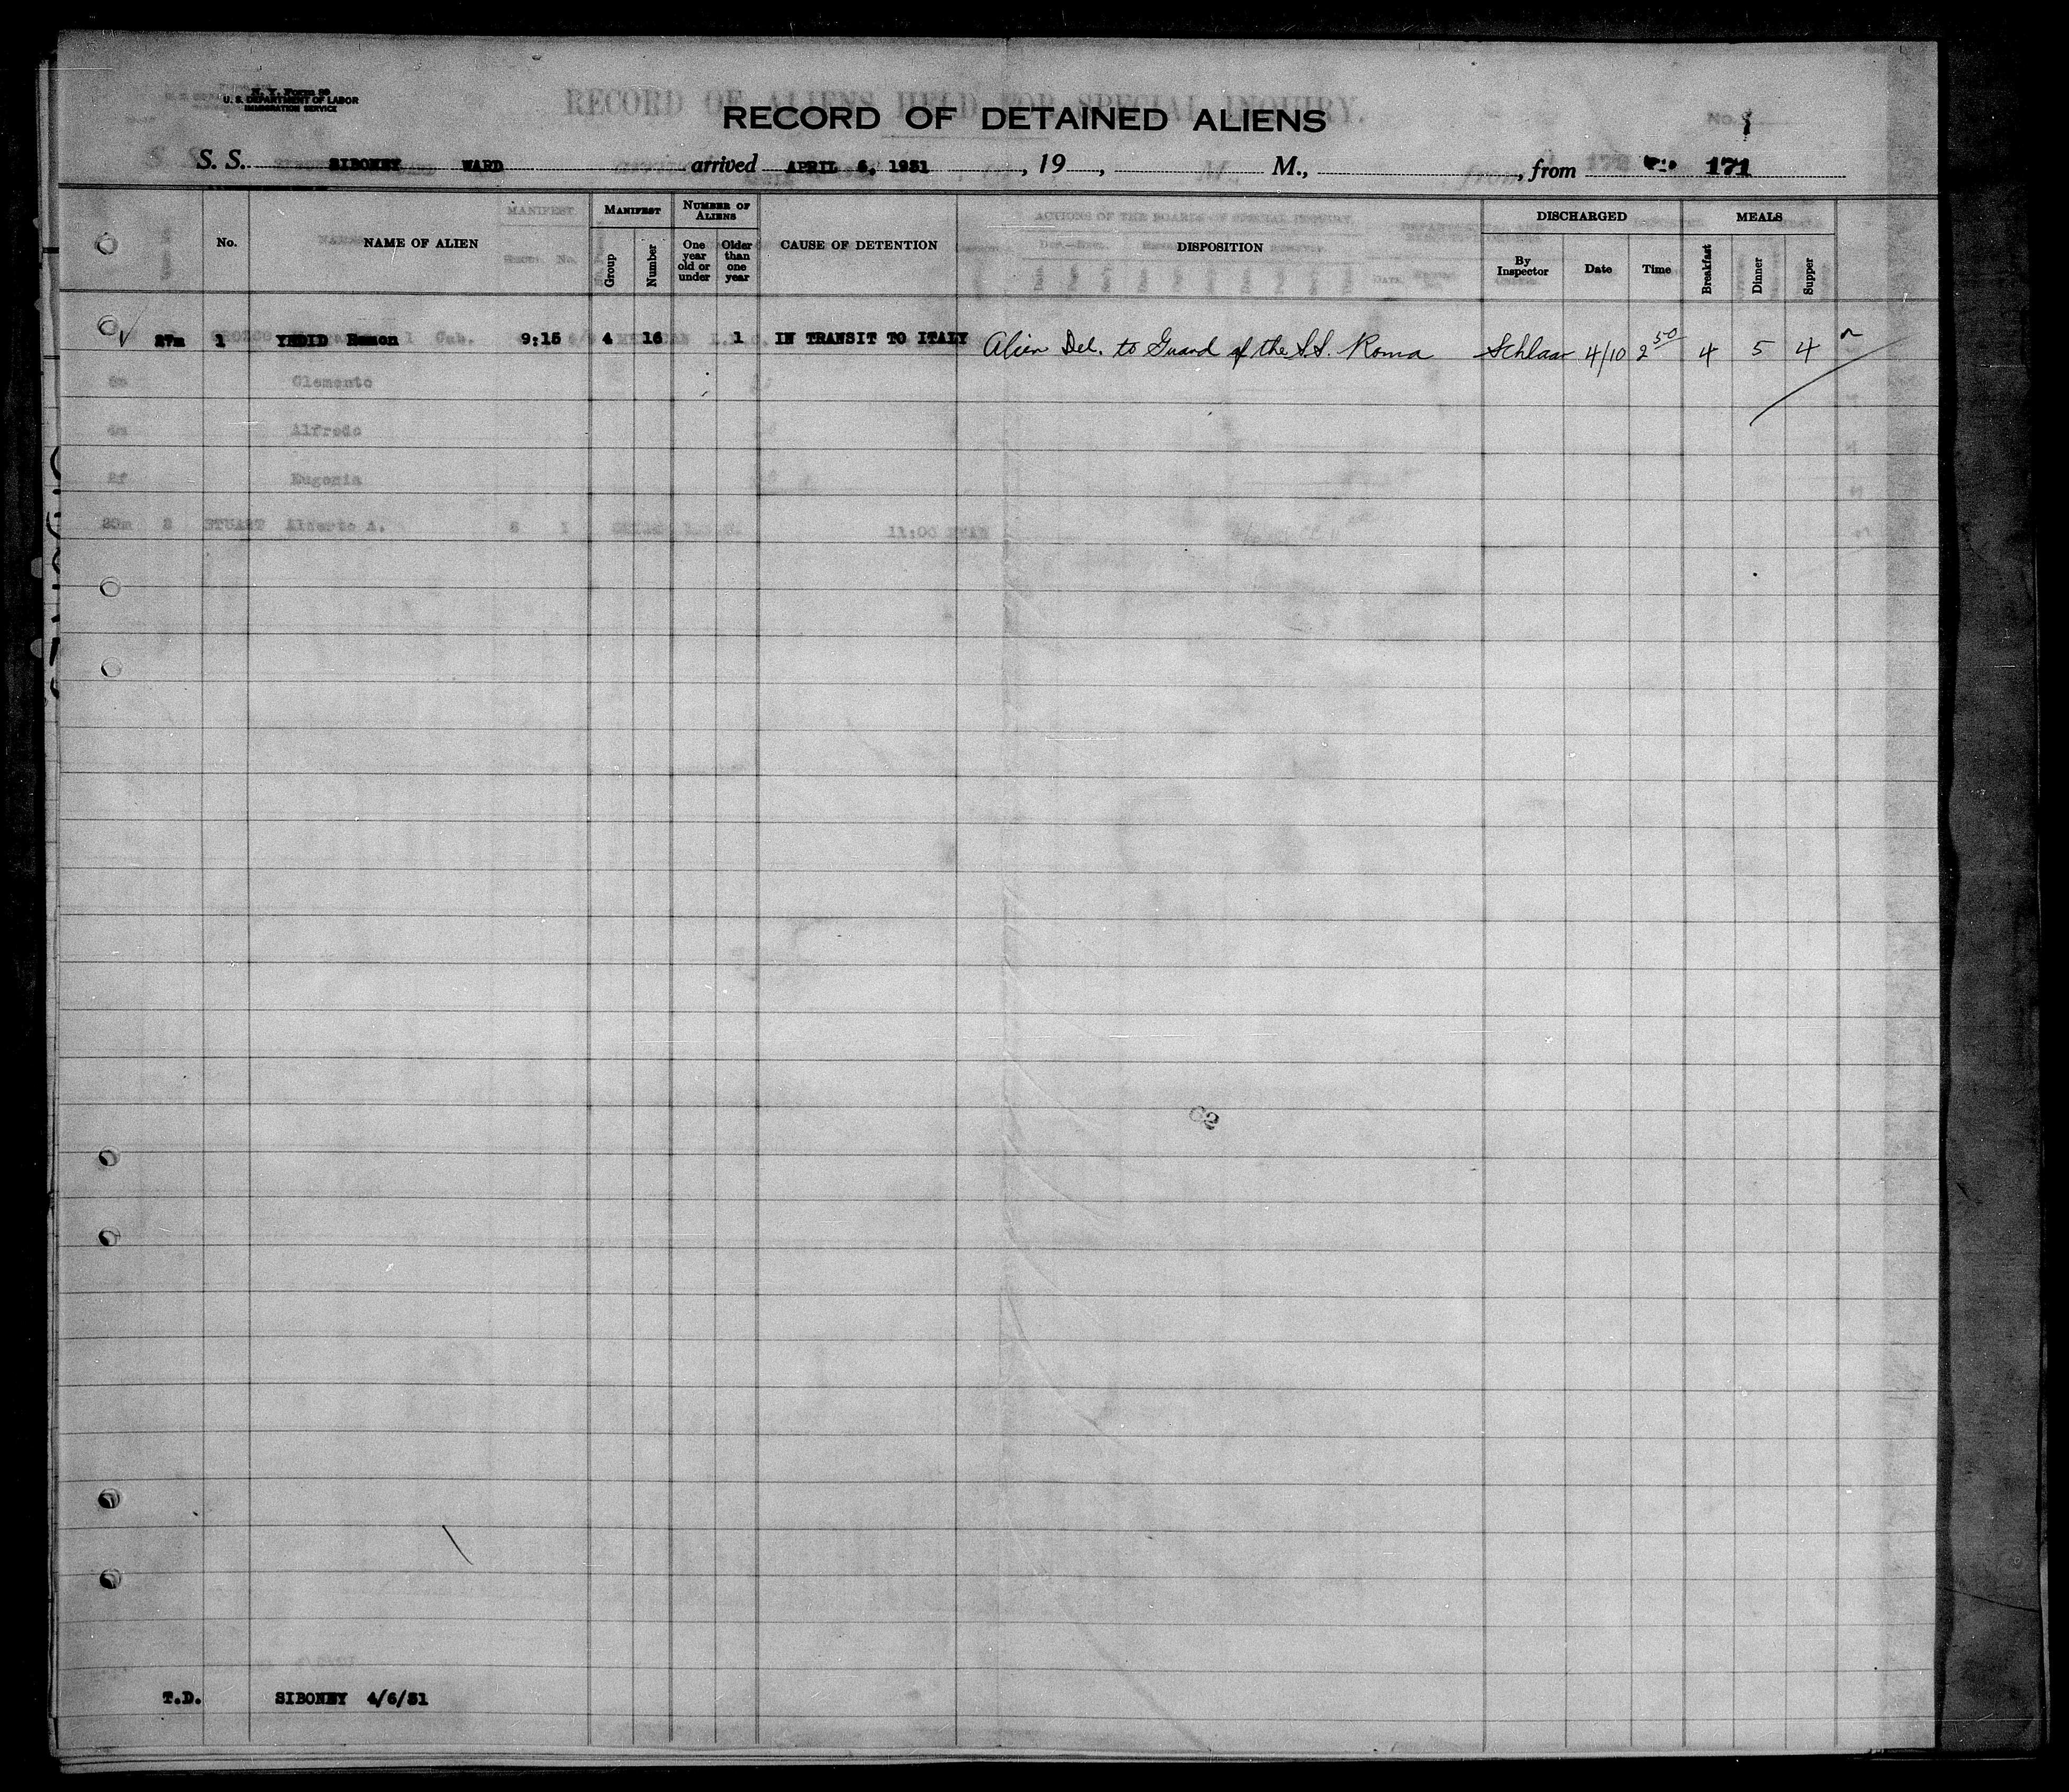 N. Y. Form 99
U. S. DEPARTMENT OF LABOR
IMMIGRATION SERVICE
RECORD OF ALIENS HELD FOR SPECIAL INQUIRY.
RECORD OF DETAINED ALIENS
S. S. SIBONEY WARD arrived APRIL 6, 1931, 19, M., , from 171
No. NAME OF ALIEN MANIFEST Group Number NUMBER OF ALIENS One year old or under Older than one year CAUSE OF DETENTION DISPOSITION DISCHARGED By Inspector Date Time MEALS Breakfast Dinner Supper
27m 1 YEDID Ramon 9:15 4 16 1 IN TRANSIT TO ITALY Alien Del. to Guard of the SS. Roma Schlaar 4/10 2 50 4 5 4
6m Clemento
4m Alfredo
2f Eugenia
23m 2 STUART Alberto A. 8 1 11:00
T.D. SIBONEY 4/6/31